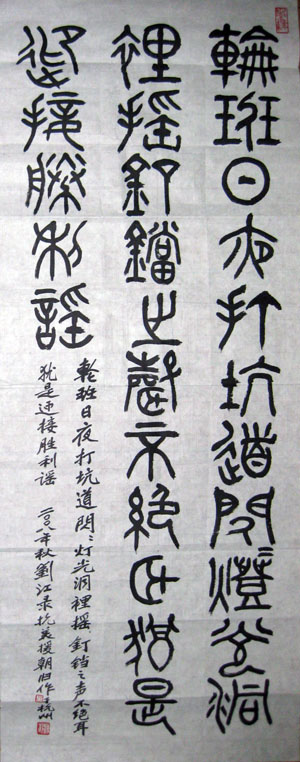 輪班日夜打坑道閃燈光洞
裡搖釘鐺之聲不絕耳猶是
迎接勝利謠
轮班日夜打坑道閃〻灯光洞裡摇釘铛之声不绝耳
犹是迎接胜利谣 二〇〇八年秋劉江录抗美援朝旧作于杭州